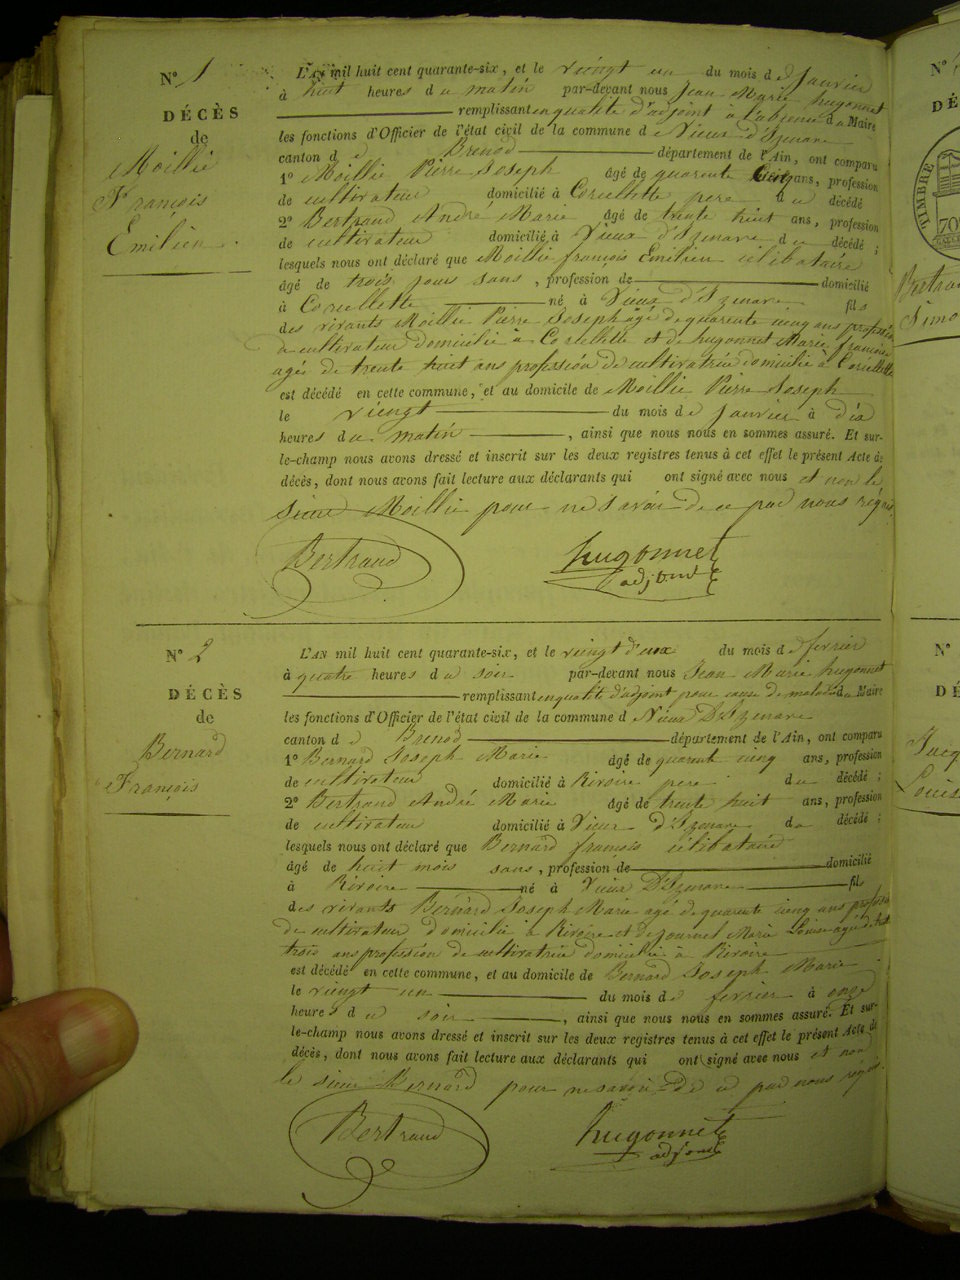 N° 1
DÉCÈS
de
Moillie
François
Emilien
L'AN mil huit cent quarante-six, et le vieingt un du mois de Janvier
à huit heures du matin par-devant nous Jean Marie hugonnet
remplissant enqualité d'adjoint à l'absence du Maire
les fonctions d'Officier de l'état civil de la commune de Vieux d'Izenave
canton de Brenod département de l'Ain, ont comparu
1° Moillie Pierre Joseph âgé de quarente cinq ans, profession
de cultivateur domicilié à Corcellette pere du décédé
2° Bertraud André Marie âgé de trente huit ans, profession
de cultivateur domicilié à Vieux d'Izenave du décédé ;
lesquels nous ont déclaré que Moillie françois Emilien célibataire
âgé de trois jours sans, profession de domicilié
à Corcellette né à Vieux d'Izenave fils
des vivants Moillie Pierre Joseph âgé de quarente cinq ans profession
de cultivateur domicilié à Corcellette et de hugonnet Marie françoise
agée de trente huit ans profession de cultivatrice domicilié à Corcellette
est décédé en cette commune, et au domicile de Moillie Pierre Joseph
le vieingt du mois de Janvier à dix
heures du matin, ainsi que nous nous en sommes assuré. Et sur-
le-champ nous avons dressé et inscrit sur les deux registres tenus à cet effet le présent Acte de
décès, dont nous avons fait lecture aux déclarants qui ont signé avec nous et non le
sieur Moillie pour ne savoir de ce par nous réquis
Bertraud hugonnet
adjoint
N° 2
DÉCÈS
de
Bernard
François
L'AN mil huit cent quarante-six, et le vieingt d'eux du mois de fevrier
à quatre heures du soir par-devant nous Jean Marie hugonnet
remplissant enqualité d'adjoint pour cause de maladie du Maire
les fonctions d'Officier de l'état civil de la commune d Vieux D'Izenave
canton de Brenod département de l'Ain, ont comparu
1° Bernard Joseph Marie âgé de quarente cinq ans, profession
de cultivateur domicilié à Rivoire pere du décédé ;
2° Bertraud André Marie âgé de trente huit ans, profession
de cultivateur domicilié à Vieux d'Izenave du décédé ;
lesquels nous ont déclaré que Bernard françois célibataire
âgé de huit mois sans, profession de domicilié
à Rivoire né à Vieux D'Izenave fils
des vivants Bernard Joseph Marie agé de quarente cinq ans profession
de cultivateur domicilié à Rivoire et de Journet Marie Louise agée de trente
trois ans profession de cultivatrice domicilié à Rivoire
est décédé en cette commune, et au domicile de Bernard Joseph Marie
le vieingt un du mois de fevrier à onze
heures du soir, ainsi que nous nous en sommes assuré. Et sur-
le-champ nous avons dressé et inscrit sur les deux registres tenus à cet effet le présent Acte de
décès, dont nous avons fait lecture aux déclarants qui ont signé avec nous et non
le sieur Bernard pour ne savoir de ce par nous réquis
Bertraud hugonnet
adjoint
N°
DÉ
TIMBRE
70
Bertrau
Simo
N°
DÉ
Jacq
Louis